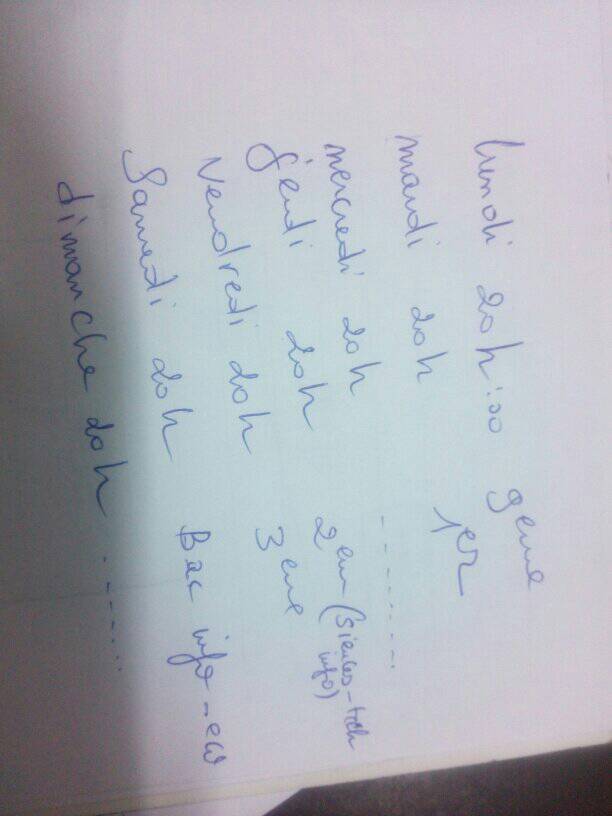 lundi 20h:00 9eme
mardi 20h 1er
mercredi 20h ..........
jeudi 20h 2em (Siences-tech info)
Vendredi 20h 3eme
Samedi 20h Bac info-eco
dimanche 20h ........